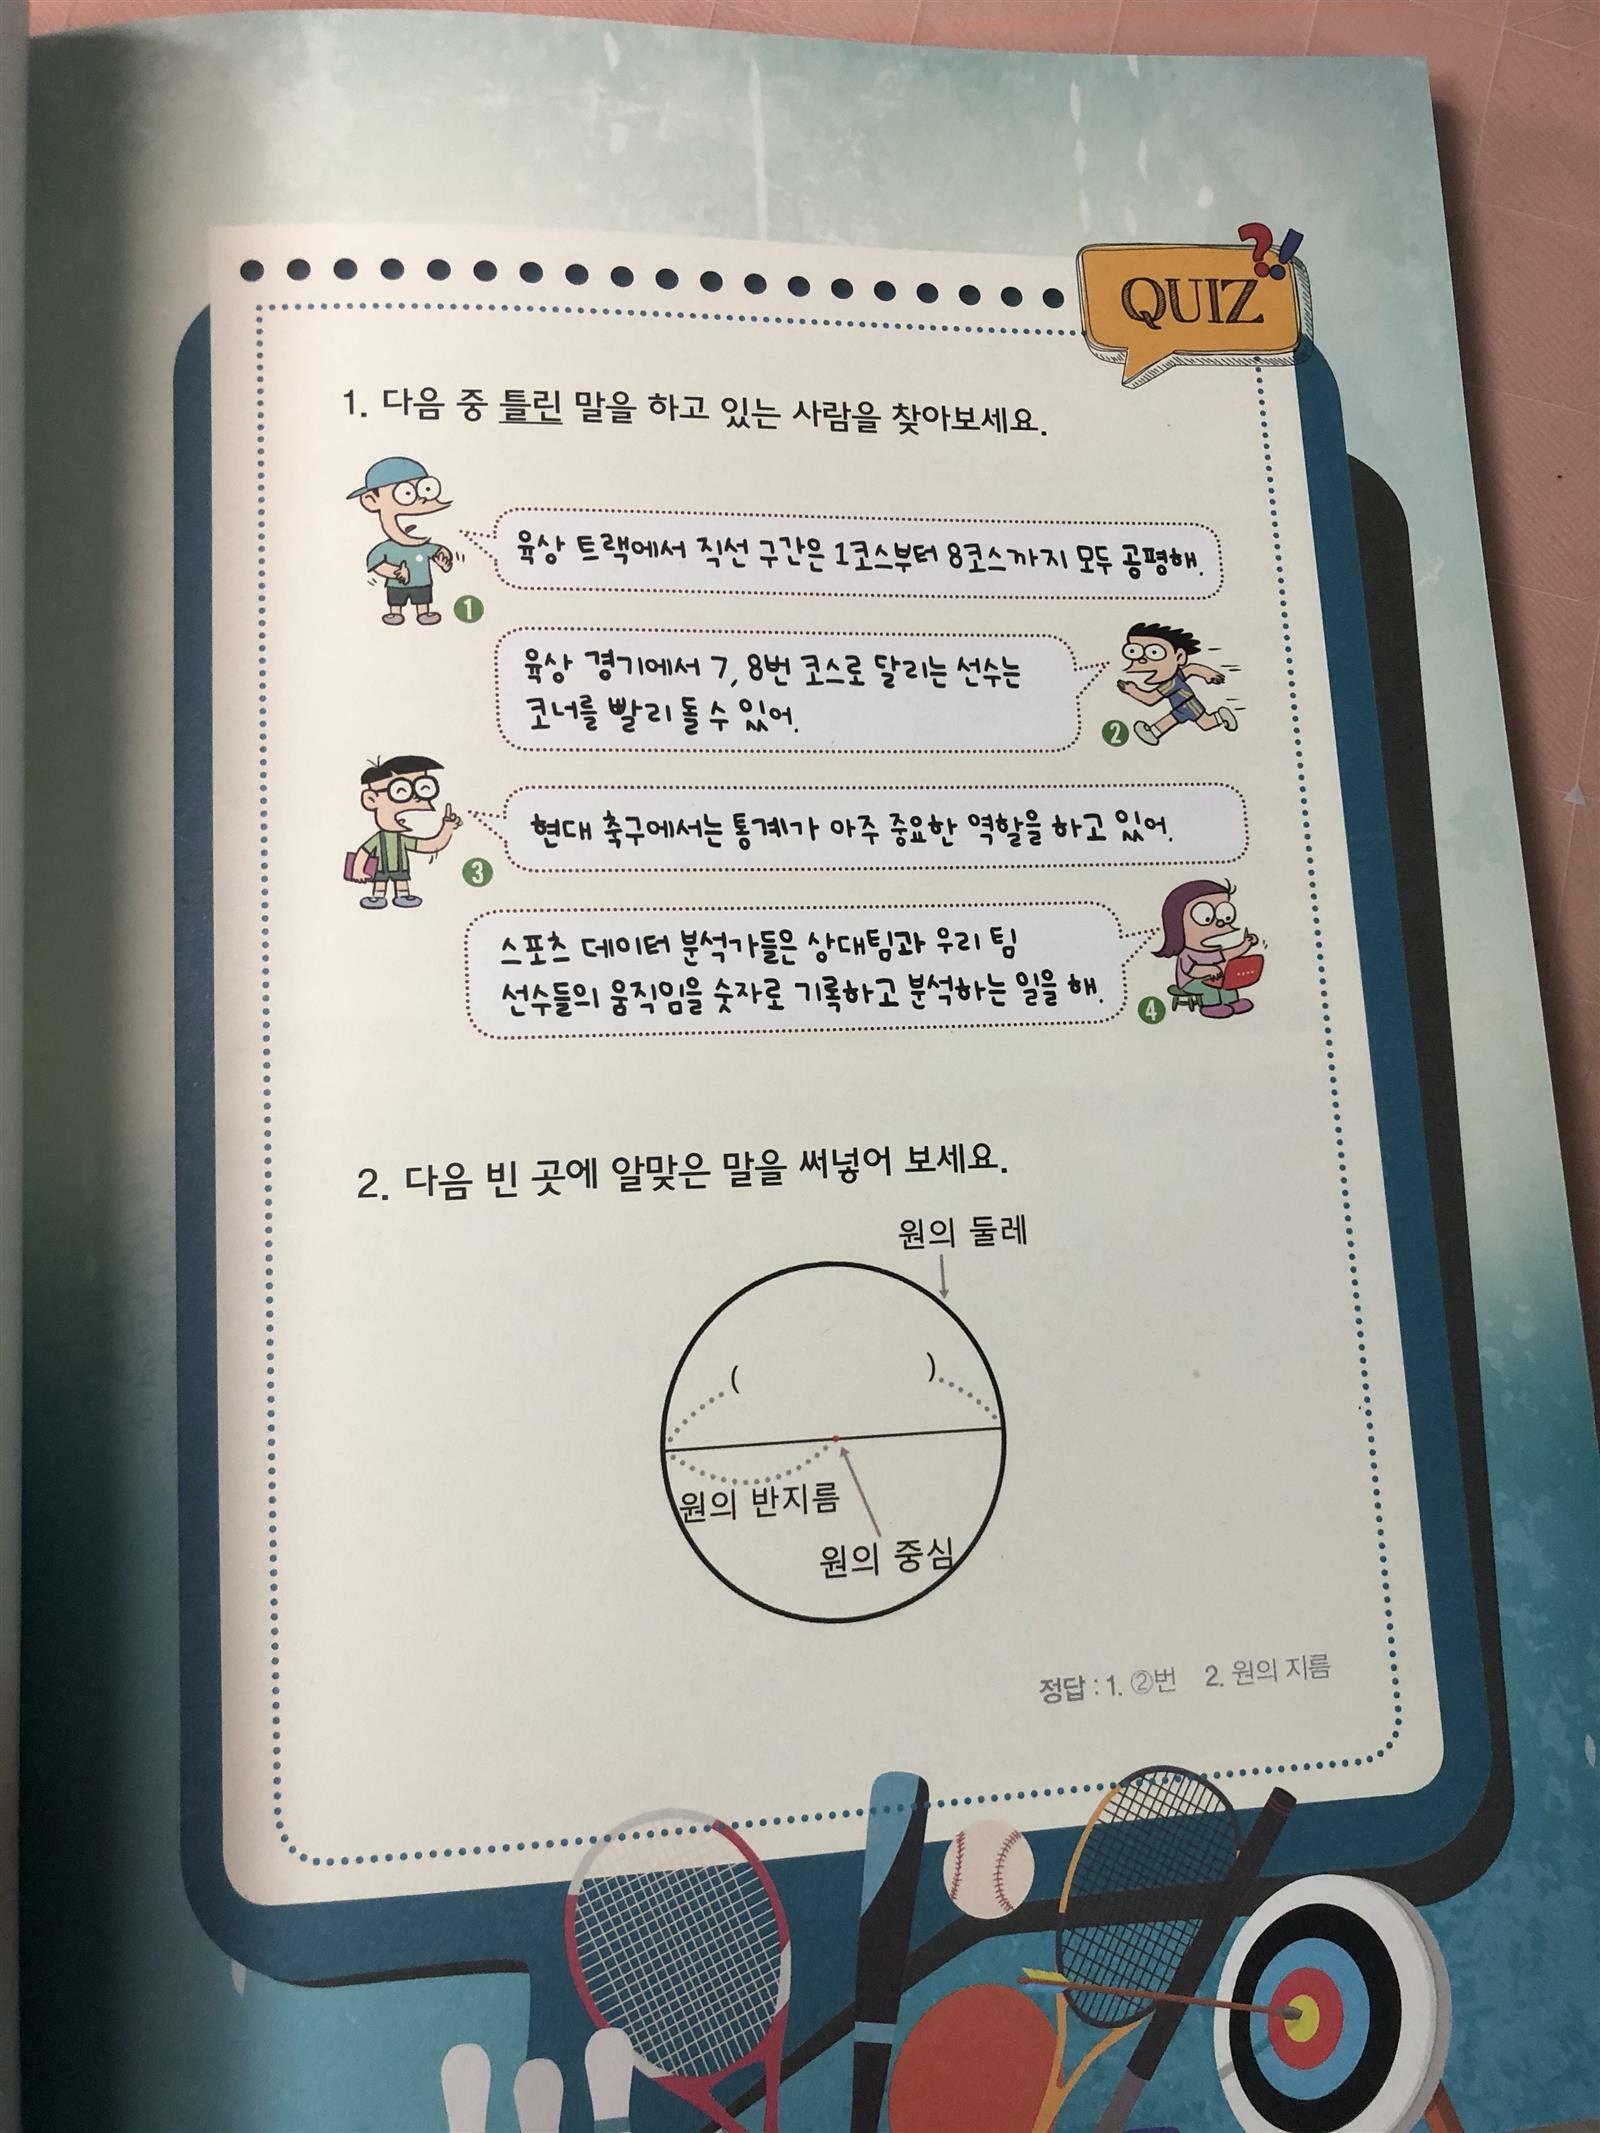 QUIZ
1. 다음 중 틀린 말을 하고 있는 사람을 찾아보세요.
육상 트랙에서 직선 구간은 1코스부터 8코스까지 모두 공평해.
1
육상 경기에서 7, 8번 코스로 달리는 선수는
코너를 빨리 돌 수 있어.
2
현대 축구에서는 통계가 아주 중요한 역할을 하고 있어.
3
스포츠 데이터 분석가들은 상대팀과 우리 팀
선수들의 움직임을 숫자로 기록하고 분석하는 일을 해.
4
2. 다음 빈 곳에 알맞은 말을 써넣어 보세요.
원의 둘레
( )
원의 반지름
원의 중심
정답 : 1. ②번 2. 원의 지름